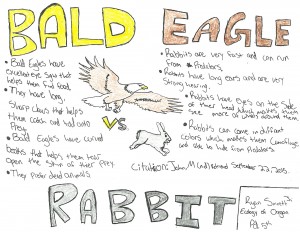 BALD EAGLE
• Bald Eagles have
excellent eye sight that
helps them find food.
• They have long,
Sharp claws that helps
them catch and hold onto
Prey.
• Bald Eagle's have curved
beaks that helps them tear
open the skin of their prey
• They prefer dead animals
VS
• Rabbits are very fast and can run
from Predators.
• Rabbits have long ears and are very
strong hearing.
• Rabbits have eyes on the side
of their head which makes them
see more of what's around them.
• Rabbits can come in different
colors which makes them camouflage
and able to hide from Predators.
Citation: John M (nd) retrieved September 22, 2015.
RABBIT
Ryan
Ecology of Oregon
Pd. 5th